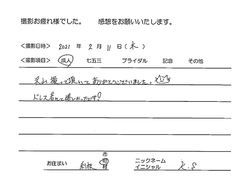 撮影お疲れ様でした。 感想をお願いいたします。
<撮影日時> 2021 年 2 月 11 日 (木)
<撮影項目> 成人 七五三 ブライダル 記念 その他
撮って頂いてありがとうございました。
ドレスも着れて嬉しかったです!
お住まい 市 ニックネーム
イニシャル K.S